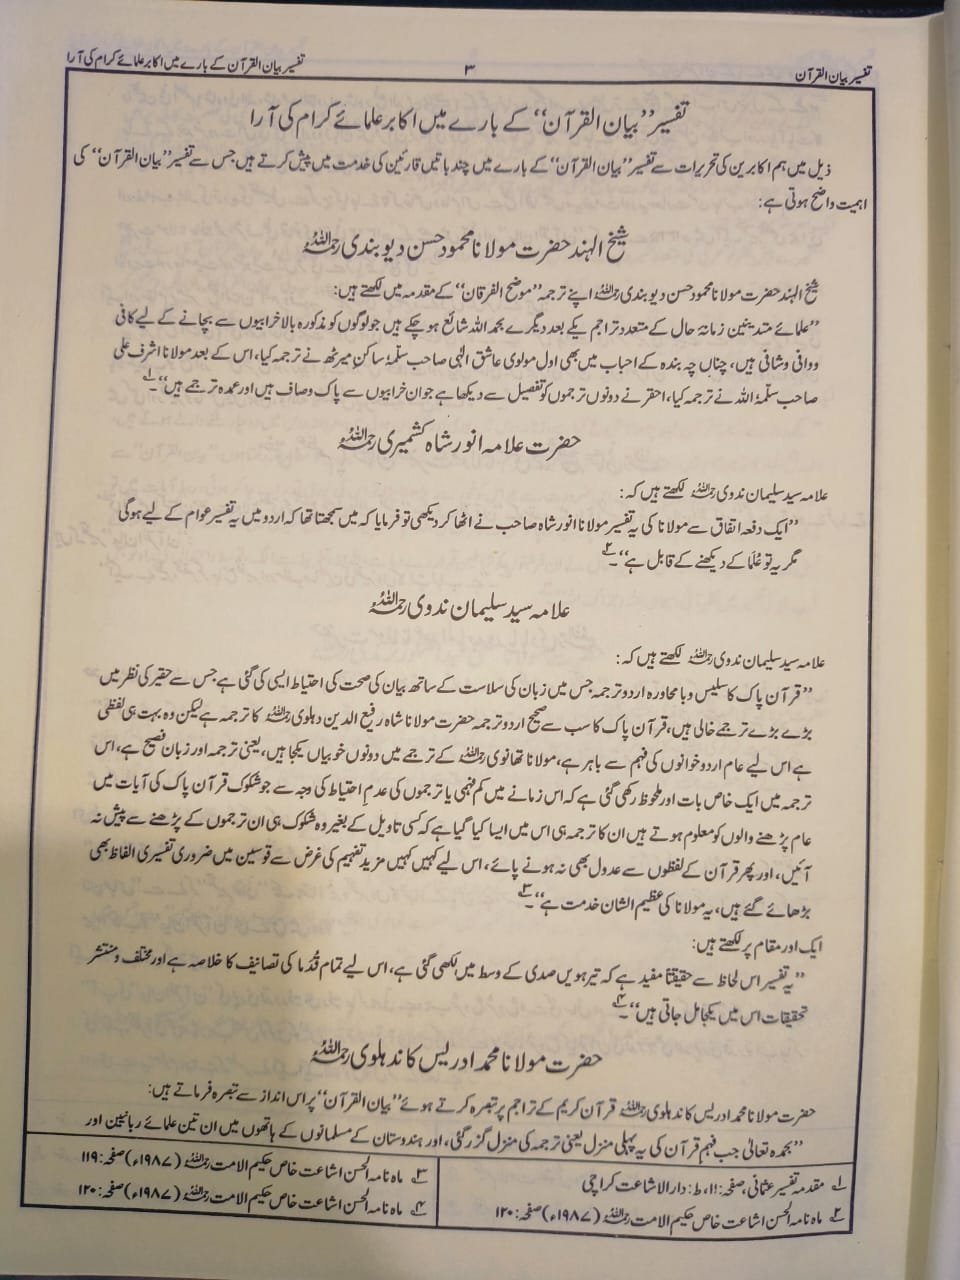 تفسیر بیان القرآن
۳
تفسیر بیان القرآن کے بارے میں اکابر علمائے کرام کی آرا
تفسیر ’’بیان القرآن‘‘ کے بارے میں اکابر علمائے کرام کی آرا
ذیل میں ہم اکابرین کی تحریرات سے تفسیر ’’بیان القرآن‘‘ کے بارے میں چند باتیں قارئین کی خدمت میں پیش کرتے ہیں جس سے تفسیر ’’بیان القرآن‘‘ کی
اہمیت واضح ہوتی ہے:
شیخ الہند حضرت مولانا محمود حسن دیوبندی رحمہ اللہ
شیخ الہند حضرت مولانا محمود حسن دیوبندی رحمہ اللہ اپنے ترجمہ ’’موضح الفرقان‘‘ کے مقدمہ میں لکھتے ہیں:
’’علمائے متدینین زمانۂ حال کے متعدد تراجم یکے بعد دیگرے بحمد اللہ شائع ہو چکے ہیں جو لوگوں کو مذکورہ بالا خرابیوں سے بچانے کے لیے کافی
ووافی وشافی ہیں، چناں چہ بندہ کے احباب میں بھی اول مولوی عاشق الٰہی صاحب سلّمہٗ ساکن میرٹھ نے ترجمہ کیا، اس کے بعد مولانا اشرف علی
صاحب سلّمہُ اللہ نے ترجمہ کیا، احقر نے دونوں ترجموں کو تفصیل سے دیکھا ہے جو ان خرابیوں سے پاک وصاف ہیں اور عمدہ ترجمے ہیں‘‘۔ ۱؎
حضرت علامہ انور شاہ کشمیری رحمہ اللہ
علامہ سید سلیمان ندوی رحمہ اللہ لکھتے ہیں کہ:
’’ایک دفعہ اتفاق سے مولانا کی یہ تفسیر مولانا انور شاہ صاحب نے اٹھا کر دیکھی تو فرمایا کہ میں سمجھتا تھا کہ اردو میں یہ تفسیر عوام کے لیے ہوگی
مگر یہ تو عُلما کے دیکھنے کے قابل ہے‘‘۔ ۲؎
علامہ سید سلیمان ندوی رحمہ اللہ
علامہ سید سلیمان ندوی رحمہ اللہ لکھتے ہیں کہ:
’’قرآن پاک کا سلیس وبا محاورہ اردو ترجمہ جس میں زبان کی سلاست کے ساتھ بیان کی صحت کی احتیاط ایسی کی گئی ہے جس سے حقیر کی نظر میں
بڑے بڑے ترجمے خالی ہیں، قرآن پاک کا سب سے صحیح اردو ترجمہ حضرت مولانا شاہ رفیع الدین دہلوی رحمہ اللہ کا ترجمہ ہے لیکن وہ بہت ہی لفظی
ہے اس لیے عام اردو خوانوں کی فہم سے باہر ہے، مولانا تھانوی رحمہ اللہ کے ترجمے میں دونوں خوبیاں یکجا ہیں، یعنی ترجمہ اور زبان فصیح ہے، اس
ترجمہ میں ایک خاص بات اور ملحوظ رکھی گئی ہے کہ اس زمانے میں کم فہمی یا ترجموں کی عدم احتیاط کی وجہ سے جو شکوک قرآن پاک کی آیات میں
عام پڑھنے والوں کو معلوم ہوتے ہیں ان کا ترجمہ ہی اس میں ایسا کیا گیا ہے کہ کسی تاویل کے بغیر وہ شکوک ہی ان ترجموں کے پڑھنے سے پیش نہ
آئیں، اور پھر قرآن کے لفظوں سے عدول بھی نہ ہونے پائے، اس لیے کہیں کہیں مزید تفہیم کی غرض سے قوسین میں ضروری تفسیری الفاظ بھی
بڑھائے گئے ہیں، یہ مولانا کی عظیم الشان خدمت ہے‘‘۔ ۳؎
ایک اور مقام پر لکھتے ہیں:
’’یہ تفسیر اس لحاظ سے حقیقتاً مفید ہے کہ تیرہویں صدی کے وسط میں لکھی گئی ہے، اس لیے تمام قُدَما کی تصانیف کا خلاصہ ہے اور مختلف ومنتشر
تحقیقات اس میں یکجا مل جاتی ہیں‘‘۔ ۴؎
حضرت مولانا محمد ادریس کاندہلوی رحمہ اللہ
حضرت مولانا محمد ادریس کاندہلوی رحمہ اللہ قرآن کریم کے تراجم پر تبصرہ کرتے ہوئے ’’بیان القرآن‘‘ پر اس انداز سے تبصرہ فرماتے ہیں:
’’بحمدہ تعالیٰ جب فہم قرآن کی یہ پہلی منزل یعنی ترجمہ کی منزل گزر گئی، اور ہندوستان کے مسلمانوں کے ہاتھوں میں ان تین علمائے ربانیین اور
۱؎ مقدمہ تفسیر عثمانی، صفحہ: ۱۱، ط: دار الاشاعت کراچی
۲؎ ماہ نامہ الحسن اشاعت خاص حکیم الامت رحمہ اللہ (۱۹۸۷ء) صفحہ: ۱۲۰
۳؎ ماہ نامہ الحسن اشاعت خاص حکیم الامت رحمہ اللہ (۱۹۸۷ء) صفحہ: ۱۱۹
۴؎ ماہ نامہ الحسن اشاعت خاص حکیم الامت رحمہ اللہ (۱۹۸۷ء) صفحہ: ۱۲۰